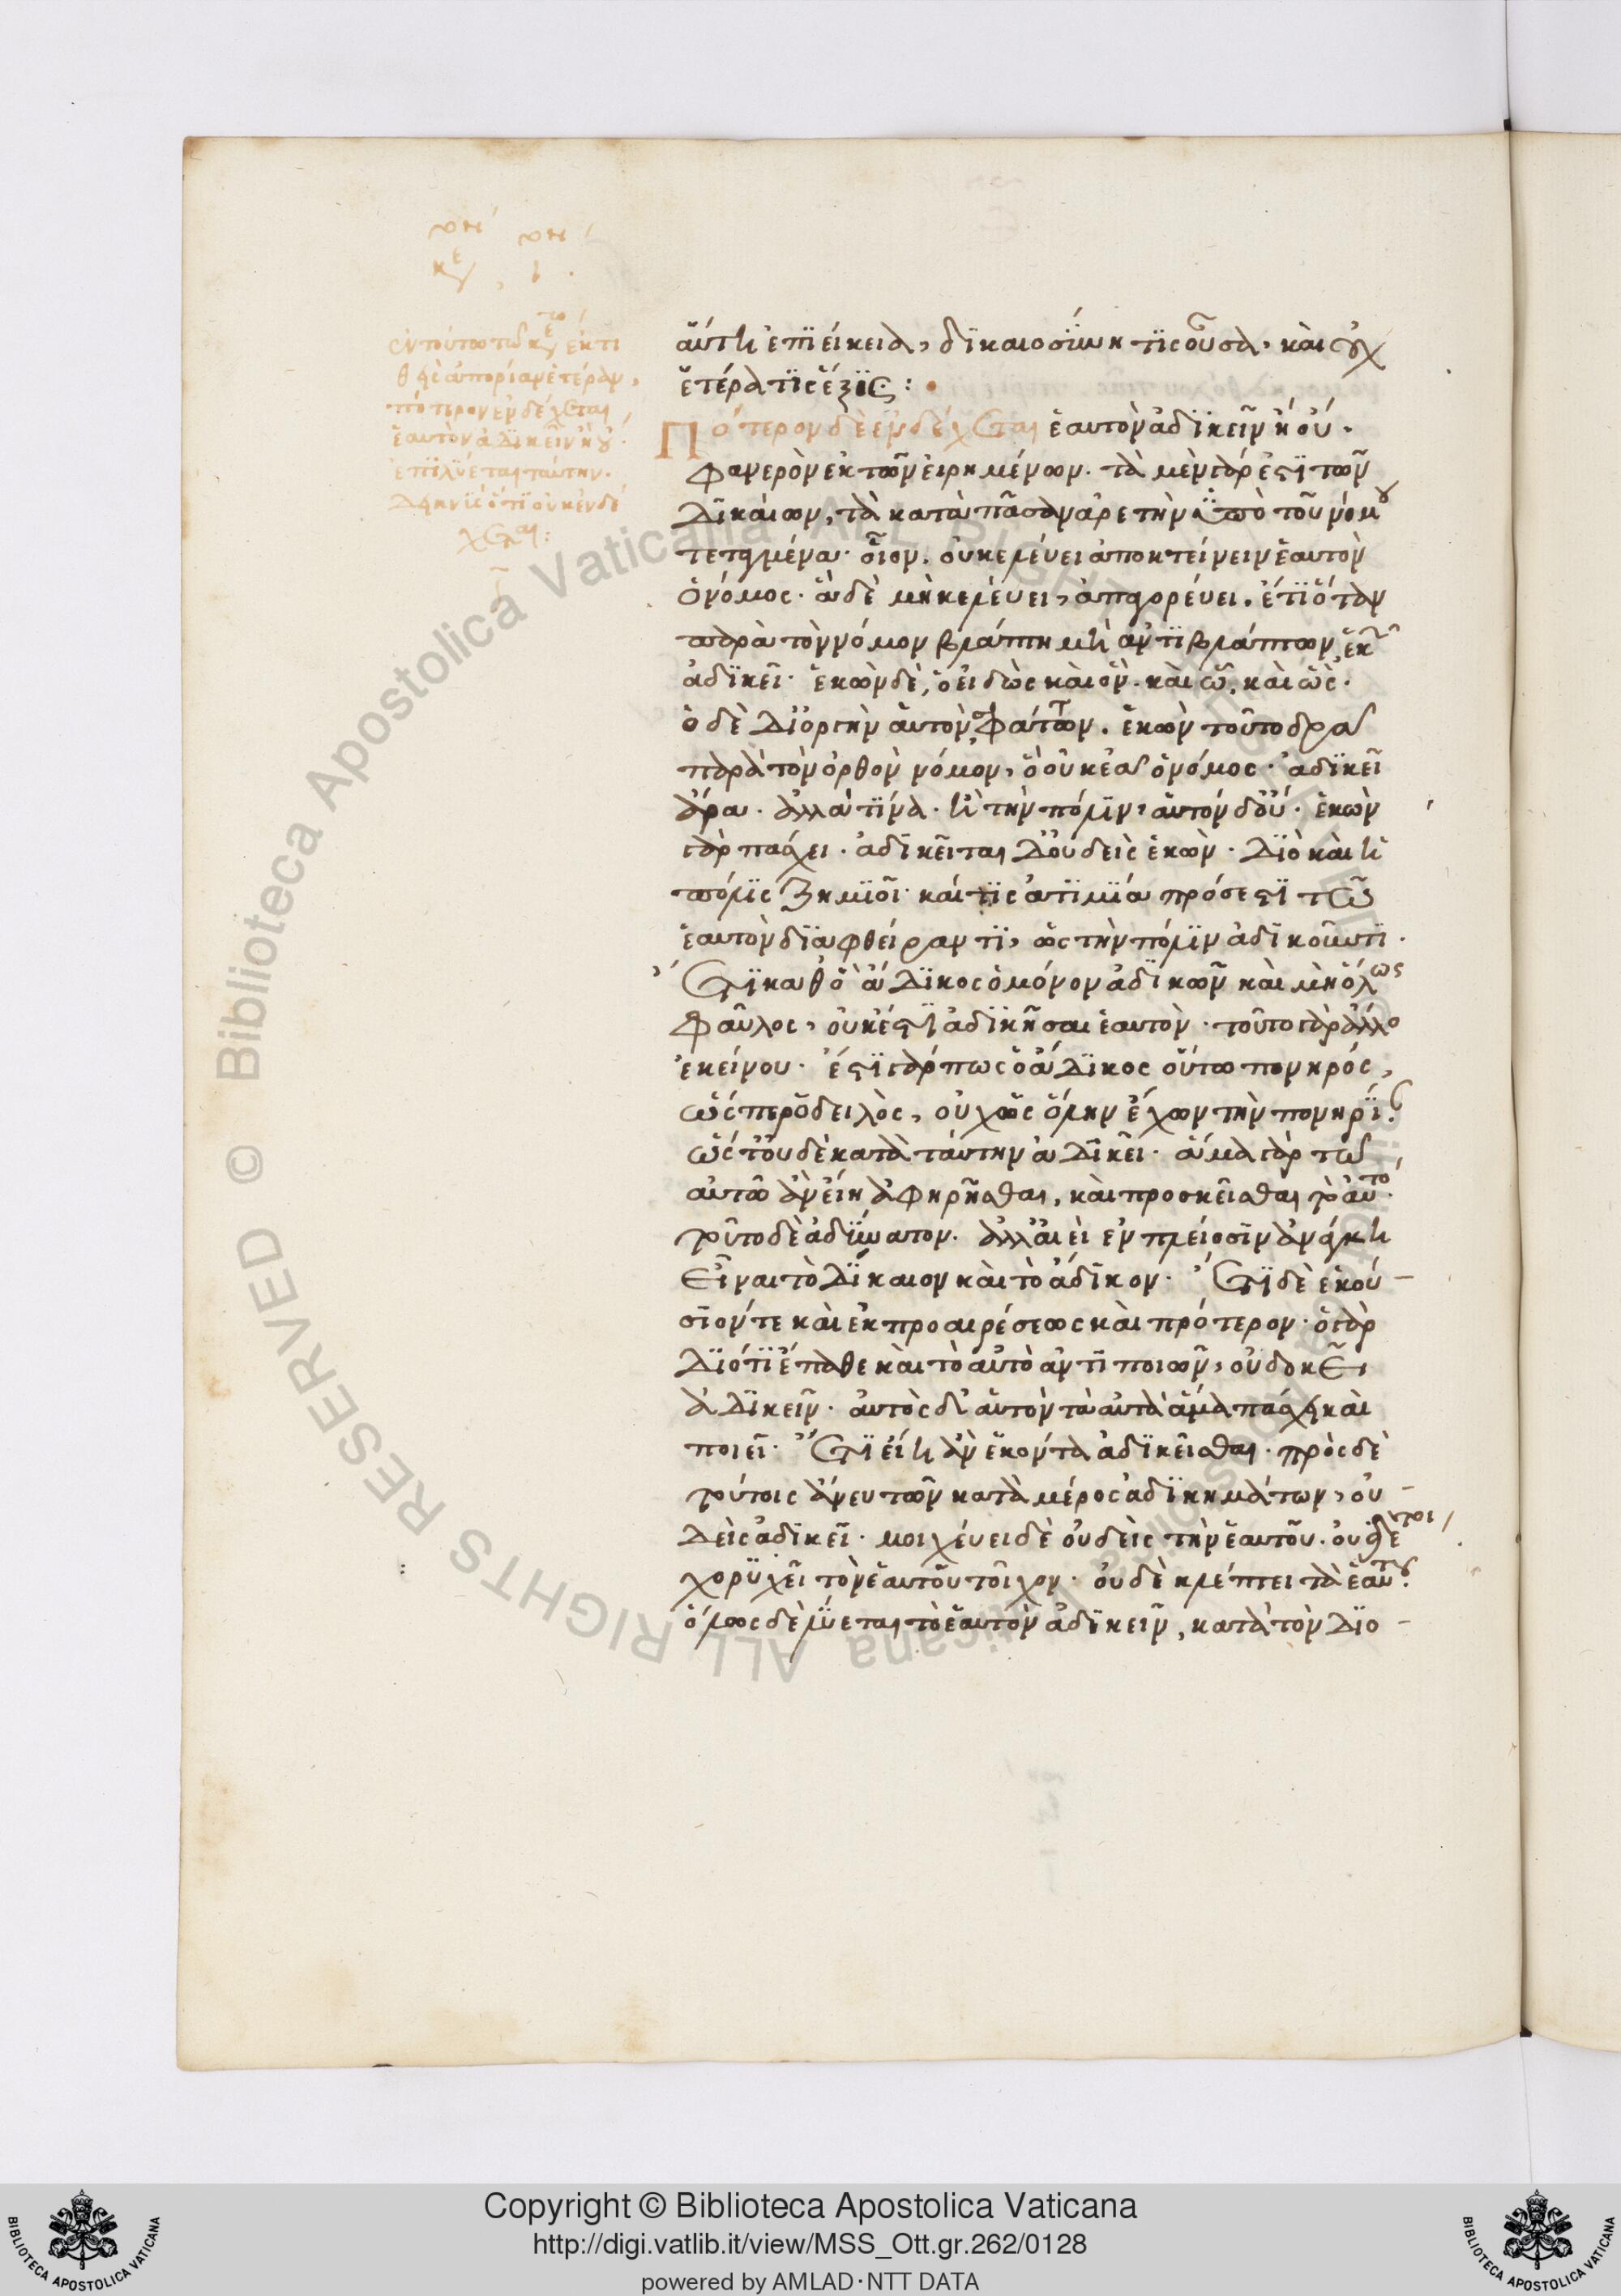 κε
ἐν τούτω τῶ κε ἐκτί
θησὶ ἀπορίαν ἑτέραν,
πότερον ἐνδέχεται
ἑαυτὸν ἀδικεῖν ἢ οὔ.
ἐπιλύεται ταύτην.
δεικνὺς ὅτι οὐκ ἐνδέ
χεται:
αὕτη ἐπιείκεια, δικαιοσύνη τις οὖσα, καὶ οὐχ
ἑτέρα τις ἕξις:
Πότερον δὲ ἐνδέχεται ἑαυτὸν ἀδικεῖν ἢ οὔ.
φανερὸν ἐκ τῶν εἰρημένων. τὰ μὲν γάρ ἐστι τῶν
δικαίων, τὰ κατὰ πᾶσαν ἀρετὴν ὑπὸ τοῦ νόμου
τεταγμένα. οἷον, οὐ κελεύει ἀποκτείνειν ἑαυτὸν
ὁ νόμος. ἃ δὲ μὴ κελεύει, ἀπαγορεύει. ἔτι ὅταν
παρὰ τὸν νόμον βλάπτη μὴ ἀντιβλάπτων ἑκὼν
ἀδικεῖ. ἑκὼν δὲ, ὁ εἰδὼς καὶ ὃν. καὶ ὧ. καὶ ὥς.
ὁ δὲ δι' ὀργὴν ἑαυτὸν σφάττων. ἑκὼν τοῦτο δρᾶ
παρὰ τὸν ὀρθὸν νόμον, ὃ οὐκ ἐᾶ ὁ νόμος. ἀδικεῖ
ἄρα. ἀλλὰ τίνα. ἢ τὴν πόλιν, αὑτὸν δ' οὔ. ἑκὼν
γὰρ πάσχει. ἀδικεῖται δ' οὐδεὶς ἑκών. διὸ καὶ ἡ
πόλις ζημιοῖ. καί τις ἀτιμία πρόσεστι τῶ
ἑαυτὸν διαφθείραντι, ὡς τὴν πόλιν ἀδικοῦντι.
Ἔτι καθ' ὃ ἄδικος ὁ μόνον ἀδικῶν καὶ μὴ ὅλως
φαῦλος, οὐκ ἔστιν ἀδικῆσαι ἑαυτὸν. τοῦτο γὰρ ἄλλο
ἐκείνου. ἔστι γάρ πως ὁ ἄδικος οὕτω πονηρός,
ὥσπερ ὁ δειλὸς, οὐχ ὡς ὅλην ἔχων τὴν πονηρίαν.
ὥστ' οὐδὲ κατὰ ταύτην ἀδικεῖ. ἅμα γὰρ τῶ
αὐτῶ ἂν εἴη ἀφηρῆσθαι, καὶ προσκεῖσθαι τὸ αὐτό.
τοῦτο δὲ ἀδύνατον. ἀλλ' ἀεὶ ἐν πλείοσιν ἀνάγκη
εἶναι τὸ δίκαιον καὶ τὸ ἄδικον. Ἔτι δὲ ἑκού-
σιόν τε καὶ ἐκ προαιρέσεως καὶ πρότερον. ὁ γὰρ
διότι ἔπαθε καὶ τὸ αὐτὸ ἀντιποιῶν, οὐ δοκεῖ
ἀδικεῖν. αὐτὸς δ' αὑτὸν τὰ αὐτὰ ἅμα πάσχει καὶ
ποιεῖ. Ἔτι εἴη ἂν ἑκόντα ἀδικεῖσθαι. πρὸς δὲ
τούτοις ἄνευ τῶν κατὰ μέρος ἀδικημάτων, οὐ-
δεὶς ἀδικεῖ. μοιχεύει δὲ οὐδεὶς τὴν ἑαυτοῦ. οὐδὲ τοι
χορυχεῖ τὸν ἑαυτοῦ τοῖχον. οὐδὲ κλέπτει τὰ ἑαυτοῦ.
ὅλως δὲ λύεται τὸ ἑαυτὸν ἀδικεῖν, κατὰ τὸν διο-
© Biblioteca Apostolica Vaticana ALL RIGHTS RESERVED
Copyright © Biblioteca Apostolica Vaticana
http://digi.vatlib.it/view/MSS_Ott.gr.262/0128
powered by AMLAD·NTT DATA
BIBLIOTECA APOSTOLICA VATICANA
BIBLIOTECA APOSTOLICA VATICANA